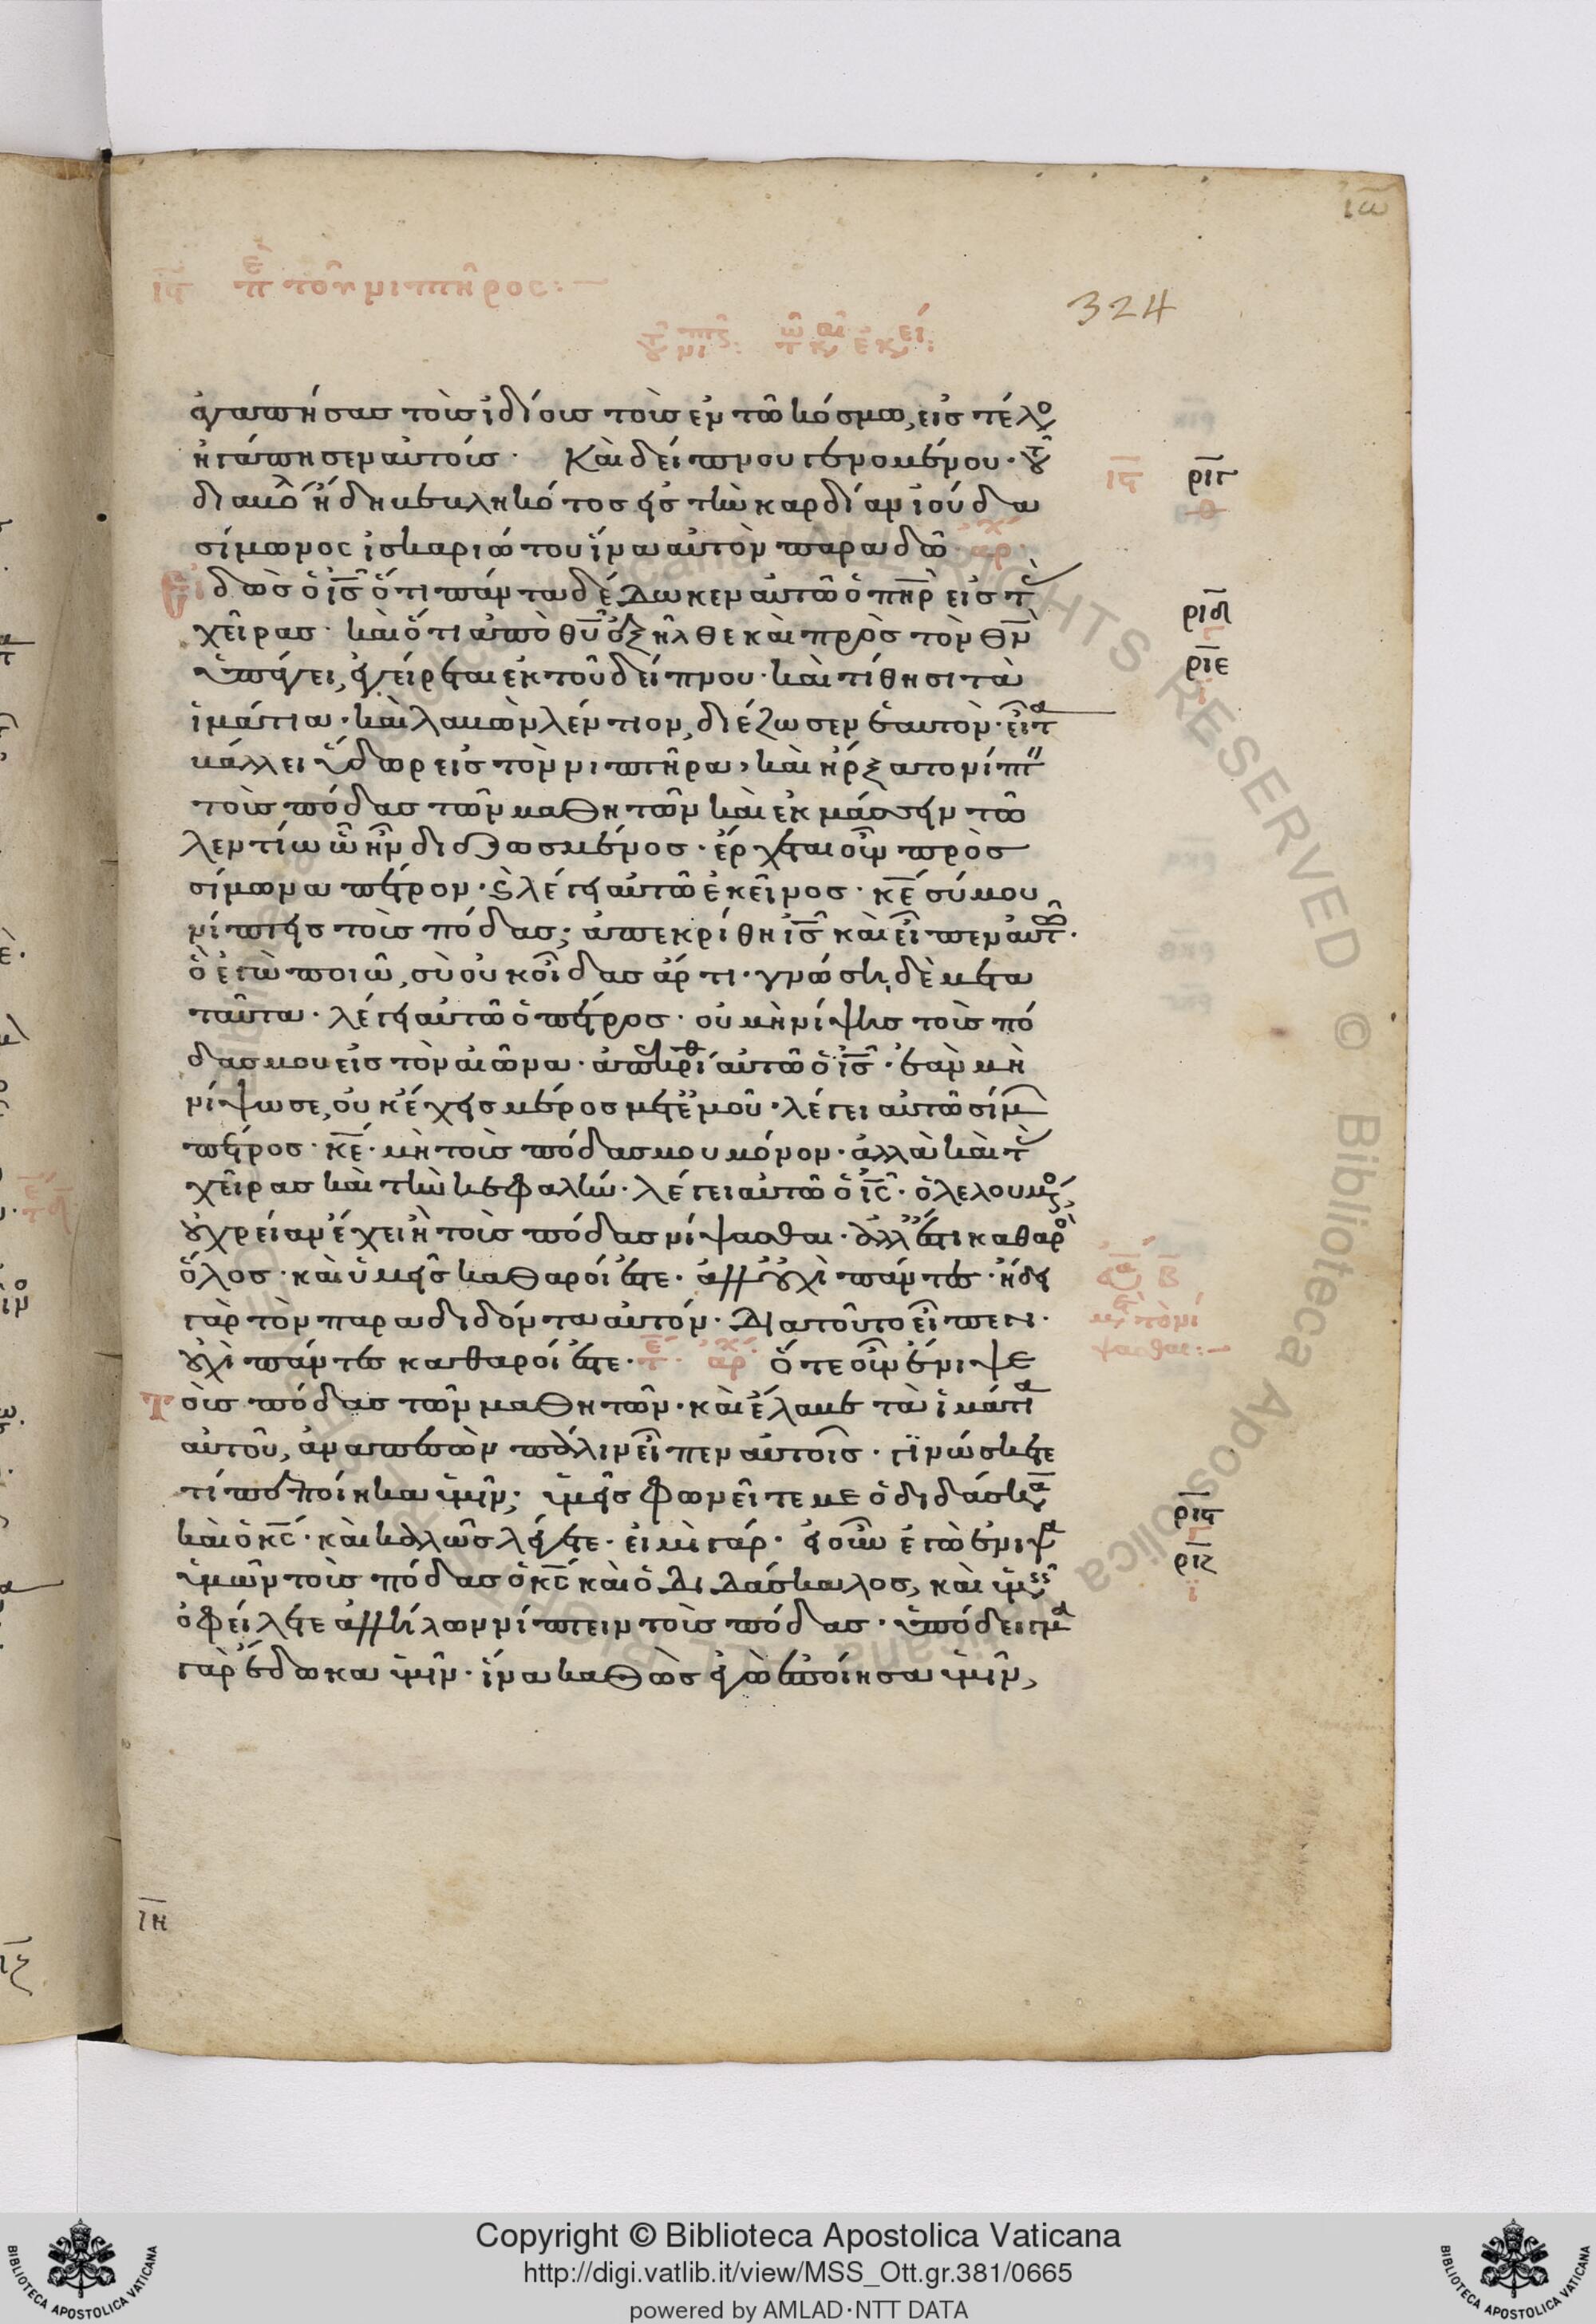 ιω
ιϛ π τοῦ νιπτῆρος:—
324
ἀγαπήσας τοὺς ἰδίους τοὺς ἐν τῶ κόσμω, εἰς τέλο
ἠγάπησεν αὐτούς· Καὶ δείπνου γενομένου· τοῦ
διαβό ἤδη βεβληκότος εἰς τὴν καρδίαν ἰούδα
σίμωνος ἰσκαριώτου ἵνα αὐτὸν παραδῶ ἀρχ
Εἰδὼς ὁ ι̅ς̅ ὅτι πάντα δέδωκεν αὐτῶ ὁ π̅η̅ρ̅ εἰς τ
χεῖρας· καὶ ὅτι ἀπὸ θ̅υ̅ ἐξῆλθε καὶ πρὸς τὸν θ̅ν̅
ὑπάγει, ἐγείρεται ἐκ τοῦ δείπνου· καὶ τίθησι τὰ
ἱμάτια· καὶ λαβὼν λέντιον, διέζωσεν ἑαυτὸν· εἶτα
βάλλει ὕδωρ εἰς τὸν νιπτῆρα, καὶ ἤρξατο νίπτ
τοὺς πόδας τῶν μαθητῶν καὶ ἐκμάσσειν τῶ
λεντίω ὧ ἦν διεζωσμένος· ἔρχεται οὖν πρὸς
σίμωνα πέτρον· καὶ λέγει αὐτῶ ἐκεῖνος· κ̅ε̅ σύ μου
νίπτεις τοὺς πόδας; ἀπεκρίθη ι̅ς̅ καὶ εἶπεν αὐτῶ·
ὃ ἐγὼ ποιῶ, σὺ οὐκ οἶδας ἄρτι· γνώση δὲ μετὰ
ταῦτα· λέγει αὐτῶ ὁ πέτρος· οὐ μὴ νίψης τοὺς πό
δας μου εἰς τὸν αἰῶνα· ἀπεκρίθ αὐτῶ ὁ ι̅ς̅· ἐὰν μὴ
νίψω σε, οὐκ ἔχεις μέρος μετ ἐμοῦ· λέγει αὐτῶ σίμ
πέτρος· κ̅ε̅· μὴ τοὺς πόδας μου μόνον· ἀλλὰ καὶ τ
χεῖρας καὶ τὴν κεφαλήν· λέγει αὐτῶ ὁ ι̅ς̅· ὁ λελουμένος,
οὐ χρείαν ἔχει ἢ τοὺς πόδας νίψασθαι· ἀλλ ἔστι καθαρὸ
ὅλος· καὶ ὑμεῖς καθαροί ἐστε· ἀλλ οὐχὶ πάντες· ἤδει
γὰρ τὸν παραδιδόντα αὐτόν· Διατοῦτο εἶπεν·
οὐχὶ πάντες καθαροί ἐστε· τε ἀρχ ὅτε οὖν ἔνιψε
Τοὺς πόδας τῶν μαθητῶν· καὶ ἔλαβε τὰ ἱμάτια
αὐτοῦ, ἀναπεσὼν πάλιν εἶπεν αὐτοῖς· γινώσκετε
τί πεποίηκα ὑμῖν; ὑμεῖς φωνεῖτε με ὁ διδάσκα
καὶ ὁ κ̅ς̅· καὶ καλῶς λέγετε· εἰμὶ γάρ· εἰ οὖν ἐγὼ ἔνιψα
ὑμῶν τοὺς πόδας ὁ κ̅ς̅ καὶ ὁ Διδάσκαλος, καὶ ὑμεῖς
ὀφείλετε ἀλλήλων νίπτειν τοὺς πόδας· ὑπόδειγμα
γὰρ ἔδωκα ὑμῖν· ἵνα καθὼς ἐγὼ ἐποίησα ὑμῖν,
ιϛ
ριγ
ριδ
ριε
ριϛ
ριζ
ιη
Copyright © Biblioteca Apostolica Vaticana
http://digi.vatlib.it/view/MSS_Ott.gr.381/0665
powered by AMLAD·NTT DATA
BIBLIOTECA APOSTOLICA VATICANA
BIBLIOTECA APOSTOLICA VATICANA